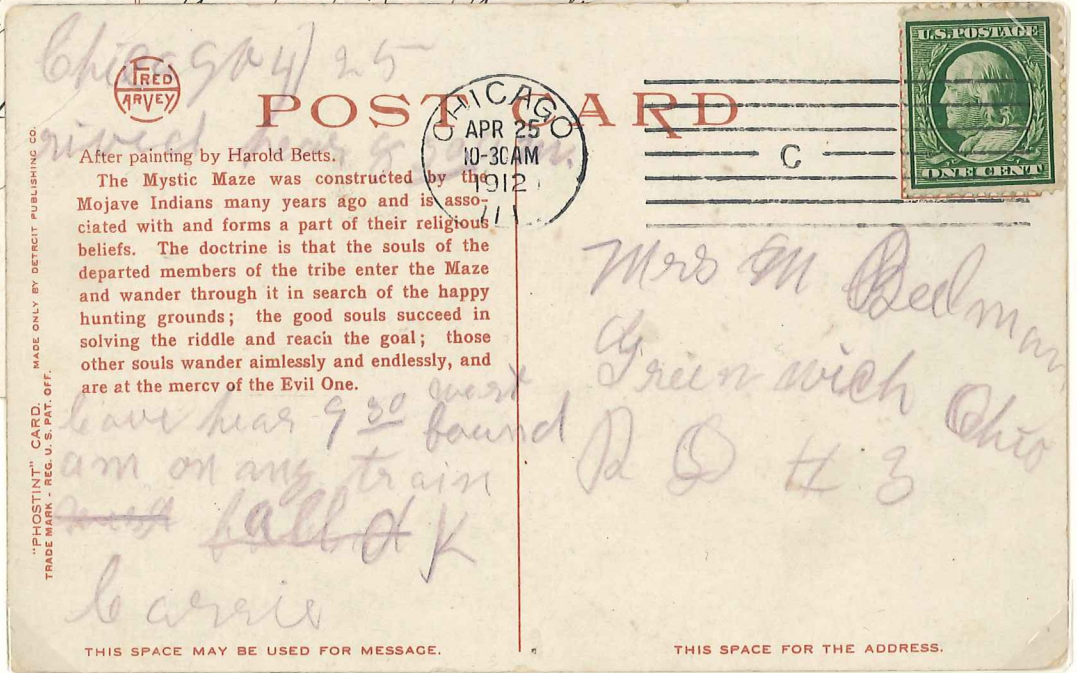 Chicago 4/25
FRED
HARVEY
POST CARD
CHICAGO
APR 25
10-30AM
1912
ILL
C
U.S.POSTAGE
ONE CENT
After painting by Harold Betts.
The Mystic Maze was constructed by the
Mojave Indians many years ago and is asso-
ciated with and forms a part of their religious
beliefs. The doctrine is that the souls of the
departed members of the tribe enter the Maze
and wander through it in search of the happy
hunting grounds; the good souls succeed in
solving the riddle and reach the goal; those
other souls wander aimlessly and endlessly, and
are at the mercy of the Evil One.
leave hear 9 30 west
bound
am on any train
all O K
Carrie
Mrs M Beelman
Greenwich Ohio
R D # 3
"PHOSTINT" CARD. MADE ONLY BY DETROIT PUBLISHING CO.
TRADE MARK - REG. U. S. PAT. OFF.
THIS SPACE MAY BE USED FOR MESSAGE.
THIS SPACE FOR THE ADDRESS.